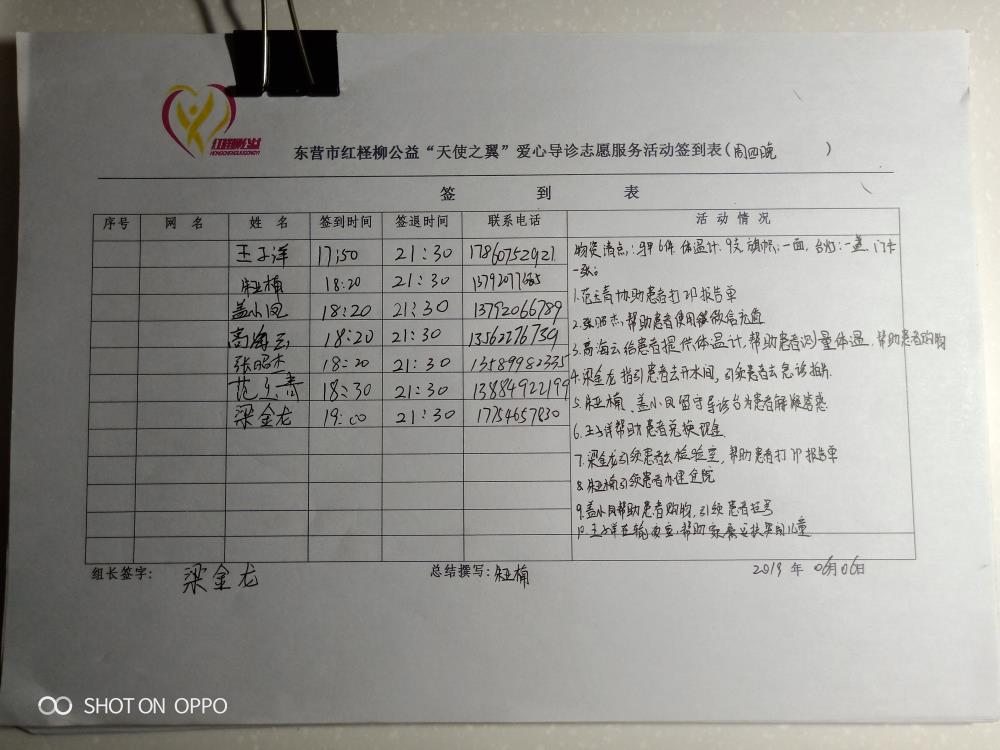 红柽柳公益
HONGCHENGLIUGONGYI
东营市红柽柳公益“天使之翼”爱心导诊志愿服务活动签到表(周四晚 )
签 到 表
序号 网 名 姓 名 签到时间 签退时间 联系电话 活 动 情 况
王子洋 17:50 21:30 17860752921
朱亚楠 18:20 21:30
盖小凤 18:20 21:30 13792066789
高海云 18:20 21:30 13562276759
张昭杰 18:20 21:30 13589982335
范立青 18:30 21:30 13884922199
梁金龙 19:00 21:30 17754657830
物资清点:马甲6件 体温计:9支 旗帜:一面,台灯:一盏,门卡
一张。
1.范立青协助患者打印报告单
2.张昭杰帮助患者使用微信充值
3.高海云给患者提供体温计,帮助患者测量体温,帮助患者购物
4.梁金龙指引患者去开水间,引领患者去急诊拍片.
5.朱亚楠、盖小凤留守导诊台为患者解疑答惑
6.王子洋帮助患者兑换现金
7.梁金龙引领患者去检验室,帮助患者打印报告单
8.朱亚楠引领患者办理住院
9.盖小凤帮助患者购物,引领患者挂号
10.王子洋在输液室,帮助家属安抚哭闹儿童
组长签字: 梁金龙 总结撰写:朱亚楠 2019 年 06月06日
SHOT ON OPPO